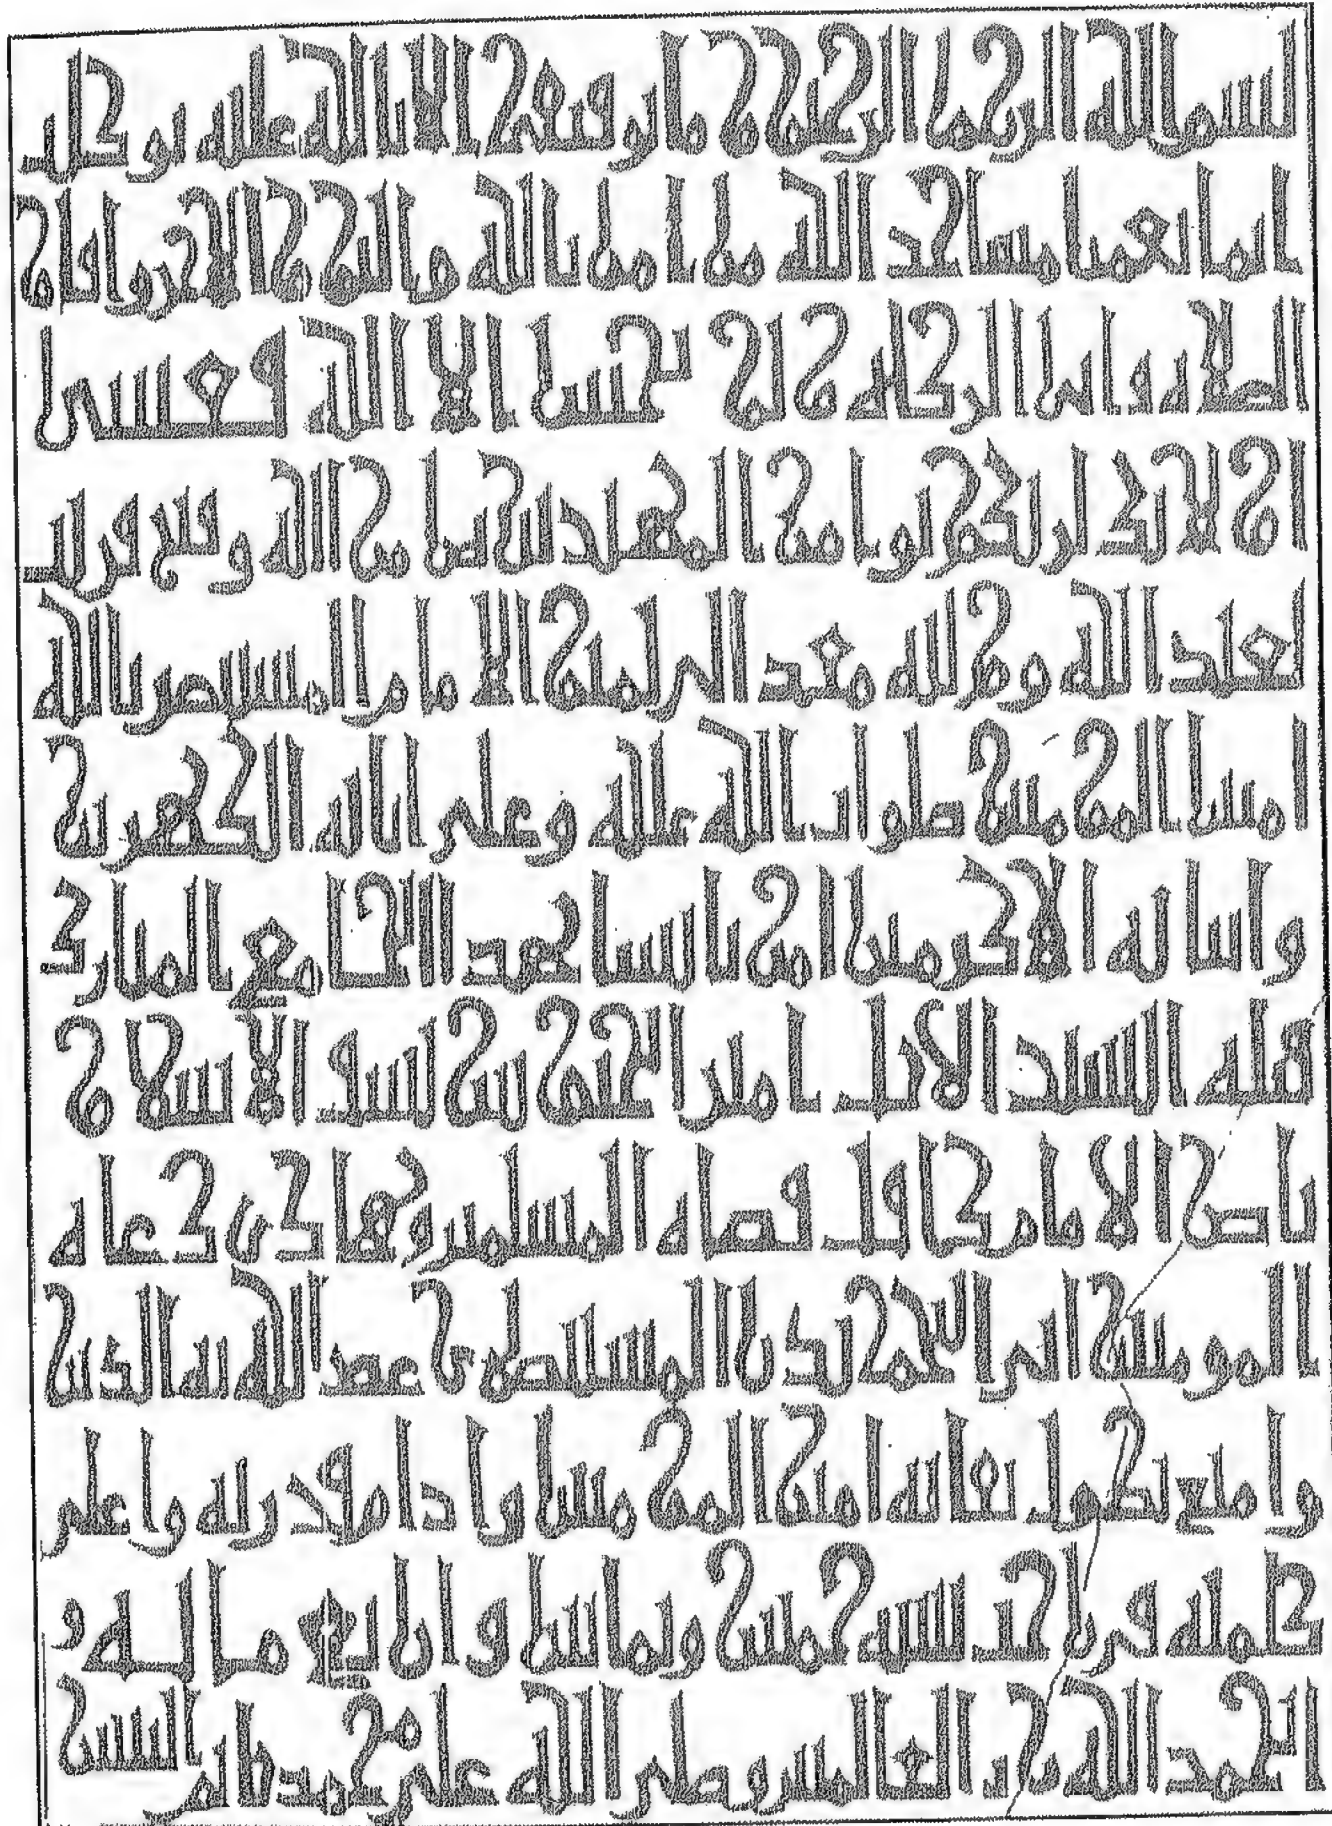 بسم الله الرحمن الرحيم وما توفيقي الا بالله عليه توكلت
انما يعمر مساجد الله من امن بالله واليوم الاخر واقام
الصلاة واتى الزكاة ولم يخش الا الله فعسى
اولئك ان يكونوا من المهتدين نصر من الله وفتح قريب
لعبد الله ووليه معد ابي تميم الامام المستنصر بالله
امير المؤمنين صلوات الله عليه وعلى ابائه الطاهرين
وابنائه الاكرمين امر بانشاء هذا الجامع المبارك
فتاه السيد الاجل امير الجيوش سيف الاسلام
ناصر الامام كافل قضاة المسلمين وهادي دعاة
المؤمنين ابو النجم بدر المستنصري عضد الله به الدين
وامتع بطول بقائه امير المؤمنين وادام قدرته واعلى
كلمته في سنة خمس وثمانين واربع مائة و
الحمد لله رب العالمين وصلى الله على محمد خاتم النبيين